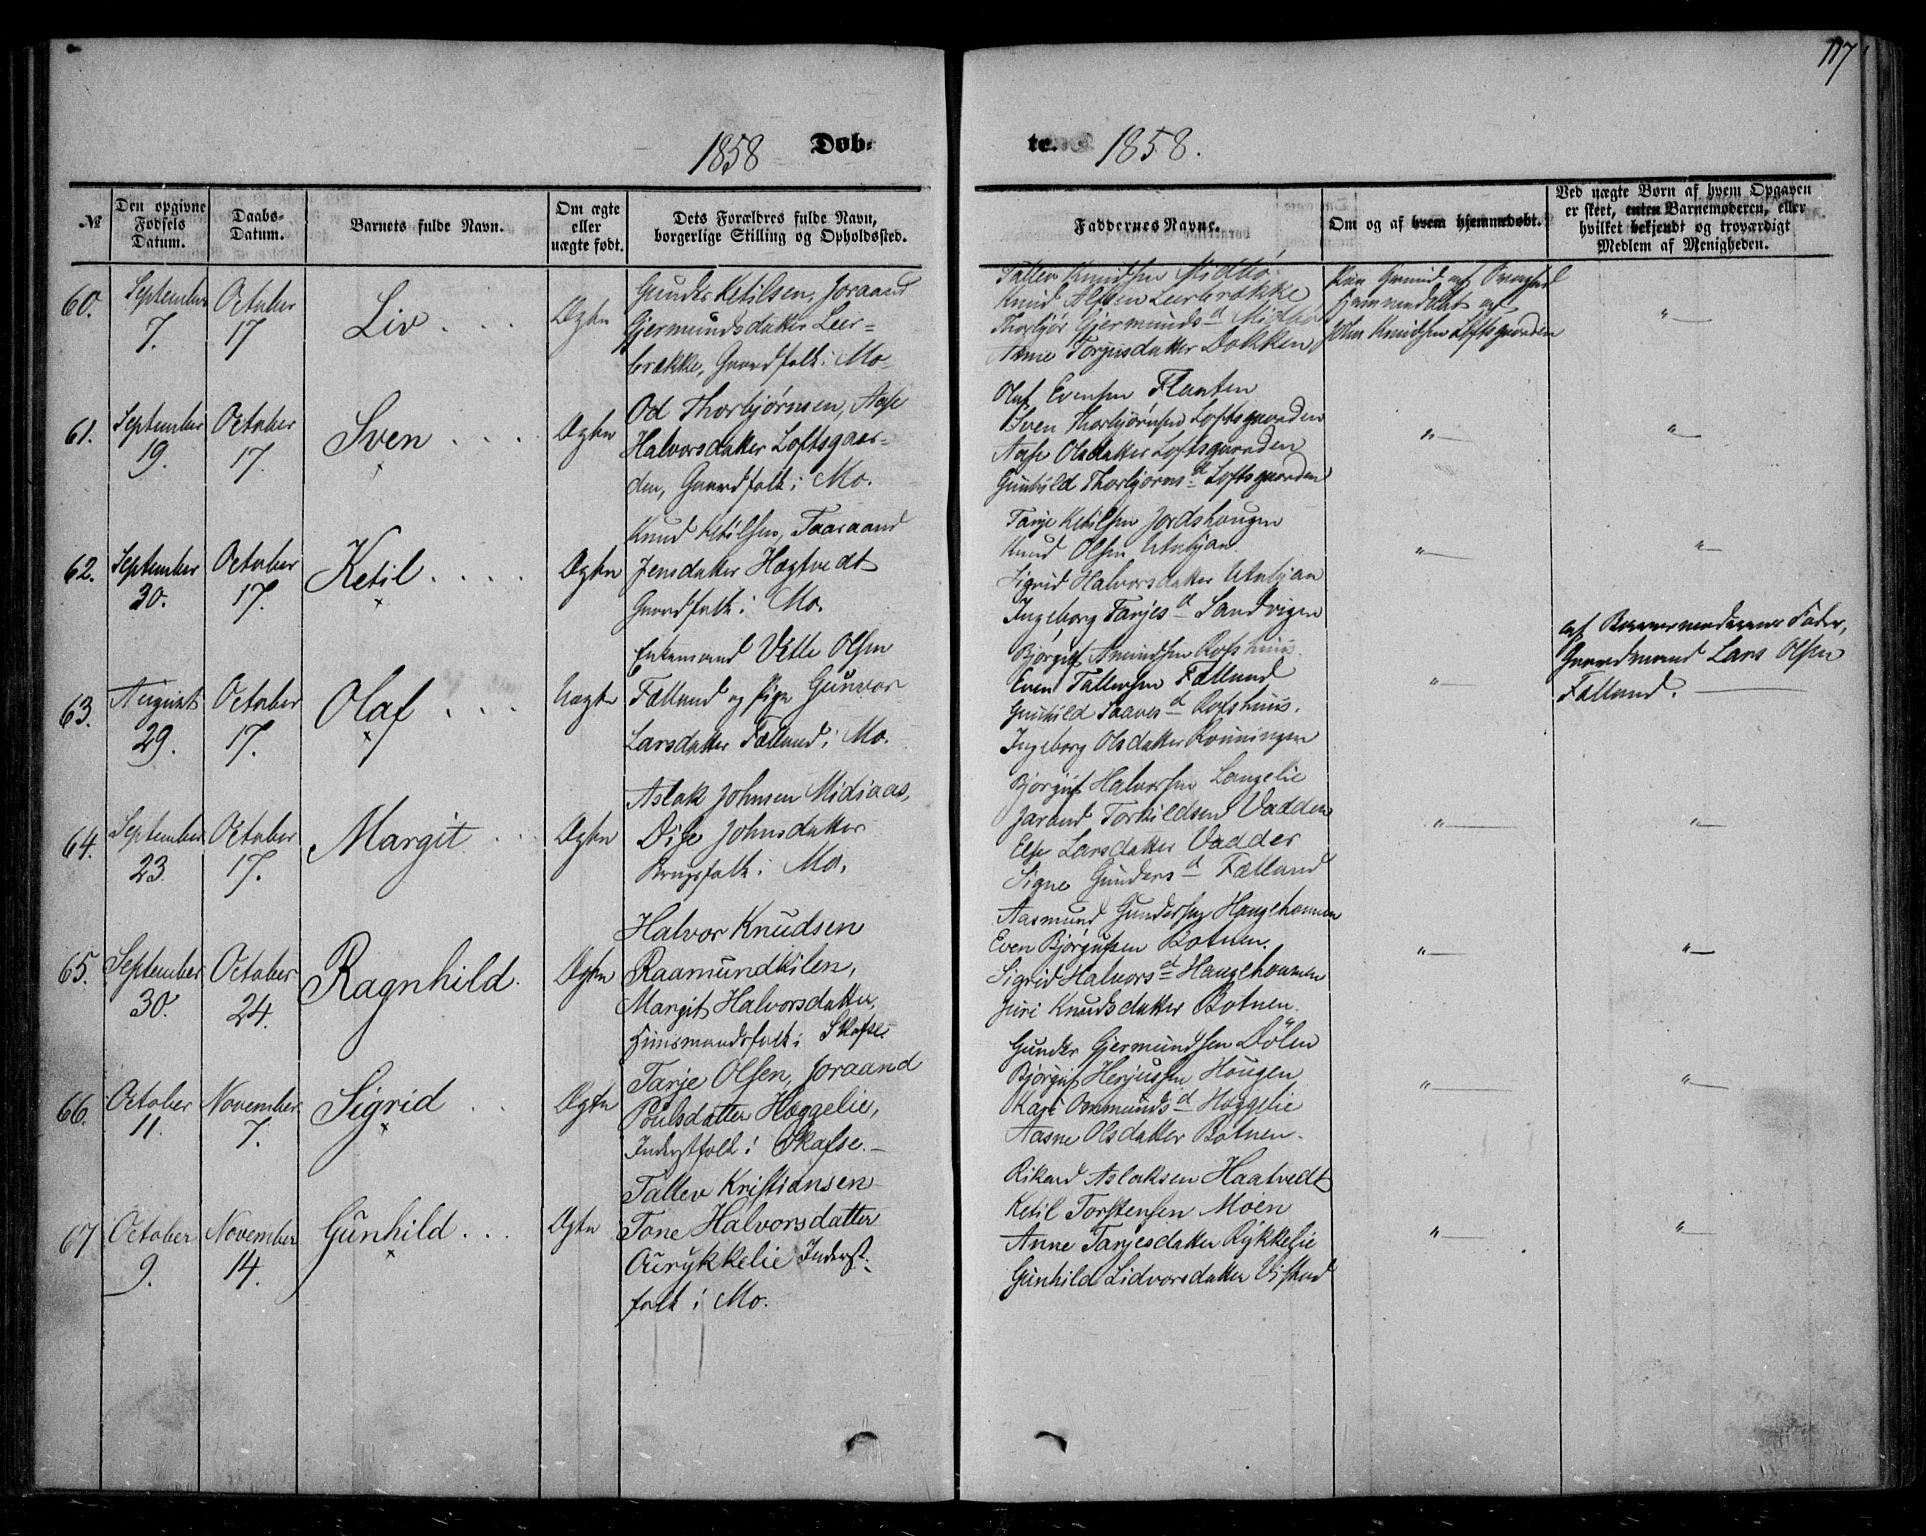 117
1858 Døb-
te. 1858.
№
Den opgivne
Fødsels
Datum.
Daabs-
Datum.
Barnets fulde Navn.
Om ægte
eller
uægte født.
Dets Forældres fulde Navn,
borgerlige Stilling og Opholdssted.
Faddernes Navne.
Om og af hvem hjemmedøbt.
Ved uægte Børn af hvem Opgaven
er skeet, enten Barnemoderen, eller
hvilket bekjendt og troværdigt
Medlem af Menigheden.
60.
September
7.
October
17
Liv
Ægte
Gunder Ketilsen, Joraand
Gjermundsdatter Leir=
brække, Gaardfolk i Mo.
Tallev Knudsen Midbø.
Knud Alfsen Leirbrække
Thorbjør Gjermunds d Midbø
Anne Torgusdatter Dokken
Hjemmedøbt af
John Knudsen Loftsgaarden
"
61.
September
19.
October
17.
Sven
x
Ægte
Od Thorbjørnsen, Aase
Halvorsdatter Loftsgaar=
den, Gaardfolk i Mo.
Olaf Evensen Flaaten
Sven Thorbjørnsen Loftsgaarden
Aase Olsdatter Loftsgaarden
Gunhild Thorbjørns d Loftsgaarden
"
"
62.
September
30.
October
17.
Ketil
x
Ægte
Knud Ketilsen, Taaraand
Jensdatter Hægtvedt
Gaardfolk i Mo.
Tarje Ketilsen Jordshougen
Knud Olsen Utabjaa
Sigrid Halvorsdatter Utabjaa
Ingeborg Tarjes d Sandvigen
"
"
63.
August
29.
October
17.
Olaf
x
Uægte
Enkemand Vetle Olsen
Fælland og Pige Gunvor
Larsdatter Fælland i Mo.
Bjørguf Amundsen Rofshuus.
Even Tallevsen Fælland
Gunhild Taaves d Rofshuus.
Ingeborg Olsdatter Rønningen
"
af Barnemoderens Fader,
Gaardmand Lars Olsen
Fælland.
64.
September
23.
October
17.
Margit
Ægte
Aslak Johnsen Midiaas,
Dise Johnsdatter
Brugsfolk i Mo.
Bjørguf Halvorsen Langelie
Jarand Torkildsen Vadder
Else Larsdatter Vadder
Signe Gunders d Fælland
"
"
65.
September
30.
October
24.
Ragnhild.
Ægte
Halvor Knudsen
Raamundkilen,
Margit Halvorsdatter,
Huusmandsfolk i Skafse.
Aasmund Gundersen Haugehommen
Even Bjørgufsen Botnen.
Sigrid Halvors d Haugehommen
Juri Knudsdatter Botnen.
"
"
66.
October
11.
November
7.
Sigrid
x
Ægte
Tarje Olsen, Joraand
Poulsdatter Hæggelie,
Inderstfolk i Skafse.
Gunder Gjermundsen Dølen
Bjørguf Herjusen Hougen
Kari Ommunds d Hæggelie
Aasne Olsdatter Botnen.
"
"
67
October
9.
November
14.
Gunhild
x
Ægte
Tallev Kristiansen
Tone Halvorsdatter
Øirykkelie Inderst=
folk i Mo.
Rikard Aslaksen Haatvedt
Ketil Torstensen Moen
Anne Tarjesdatter Rykkelie
Gunhild Lidvorsdatter Vistad
"
"